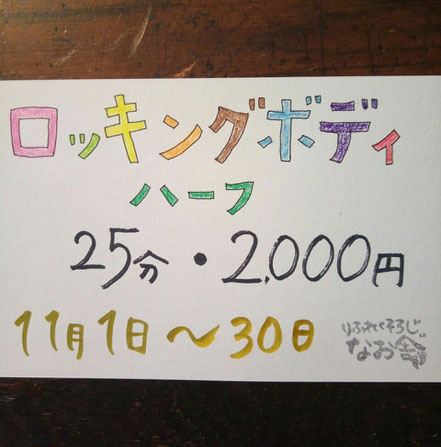 ロッキングボディ
ハーフ
25分・2,000円
11月1日～30日
りふれくそろじ
なお舎